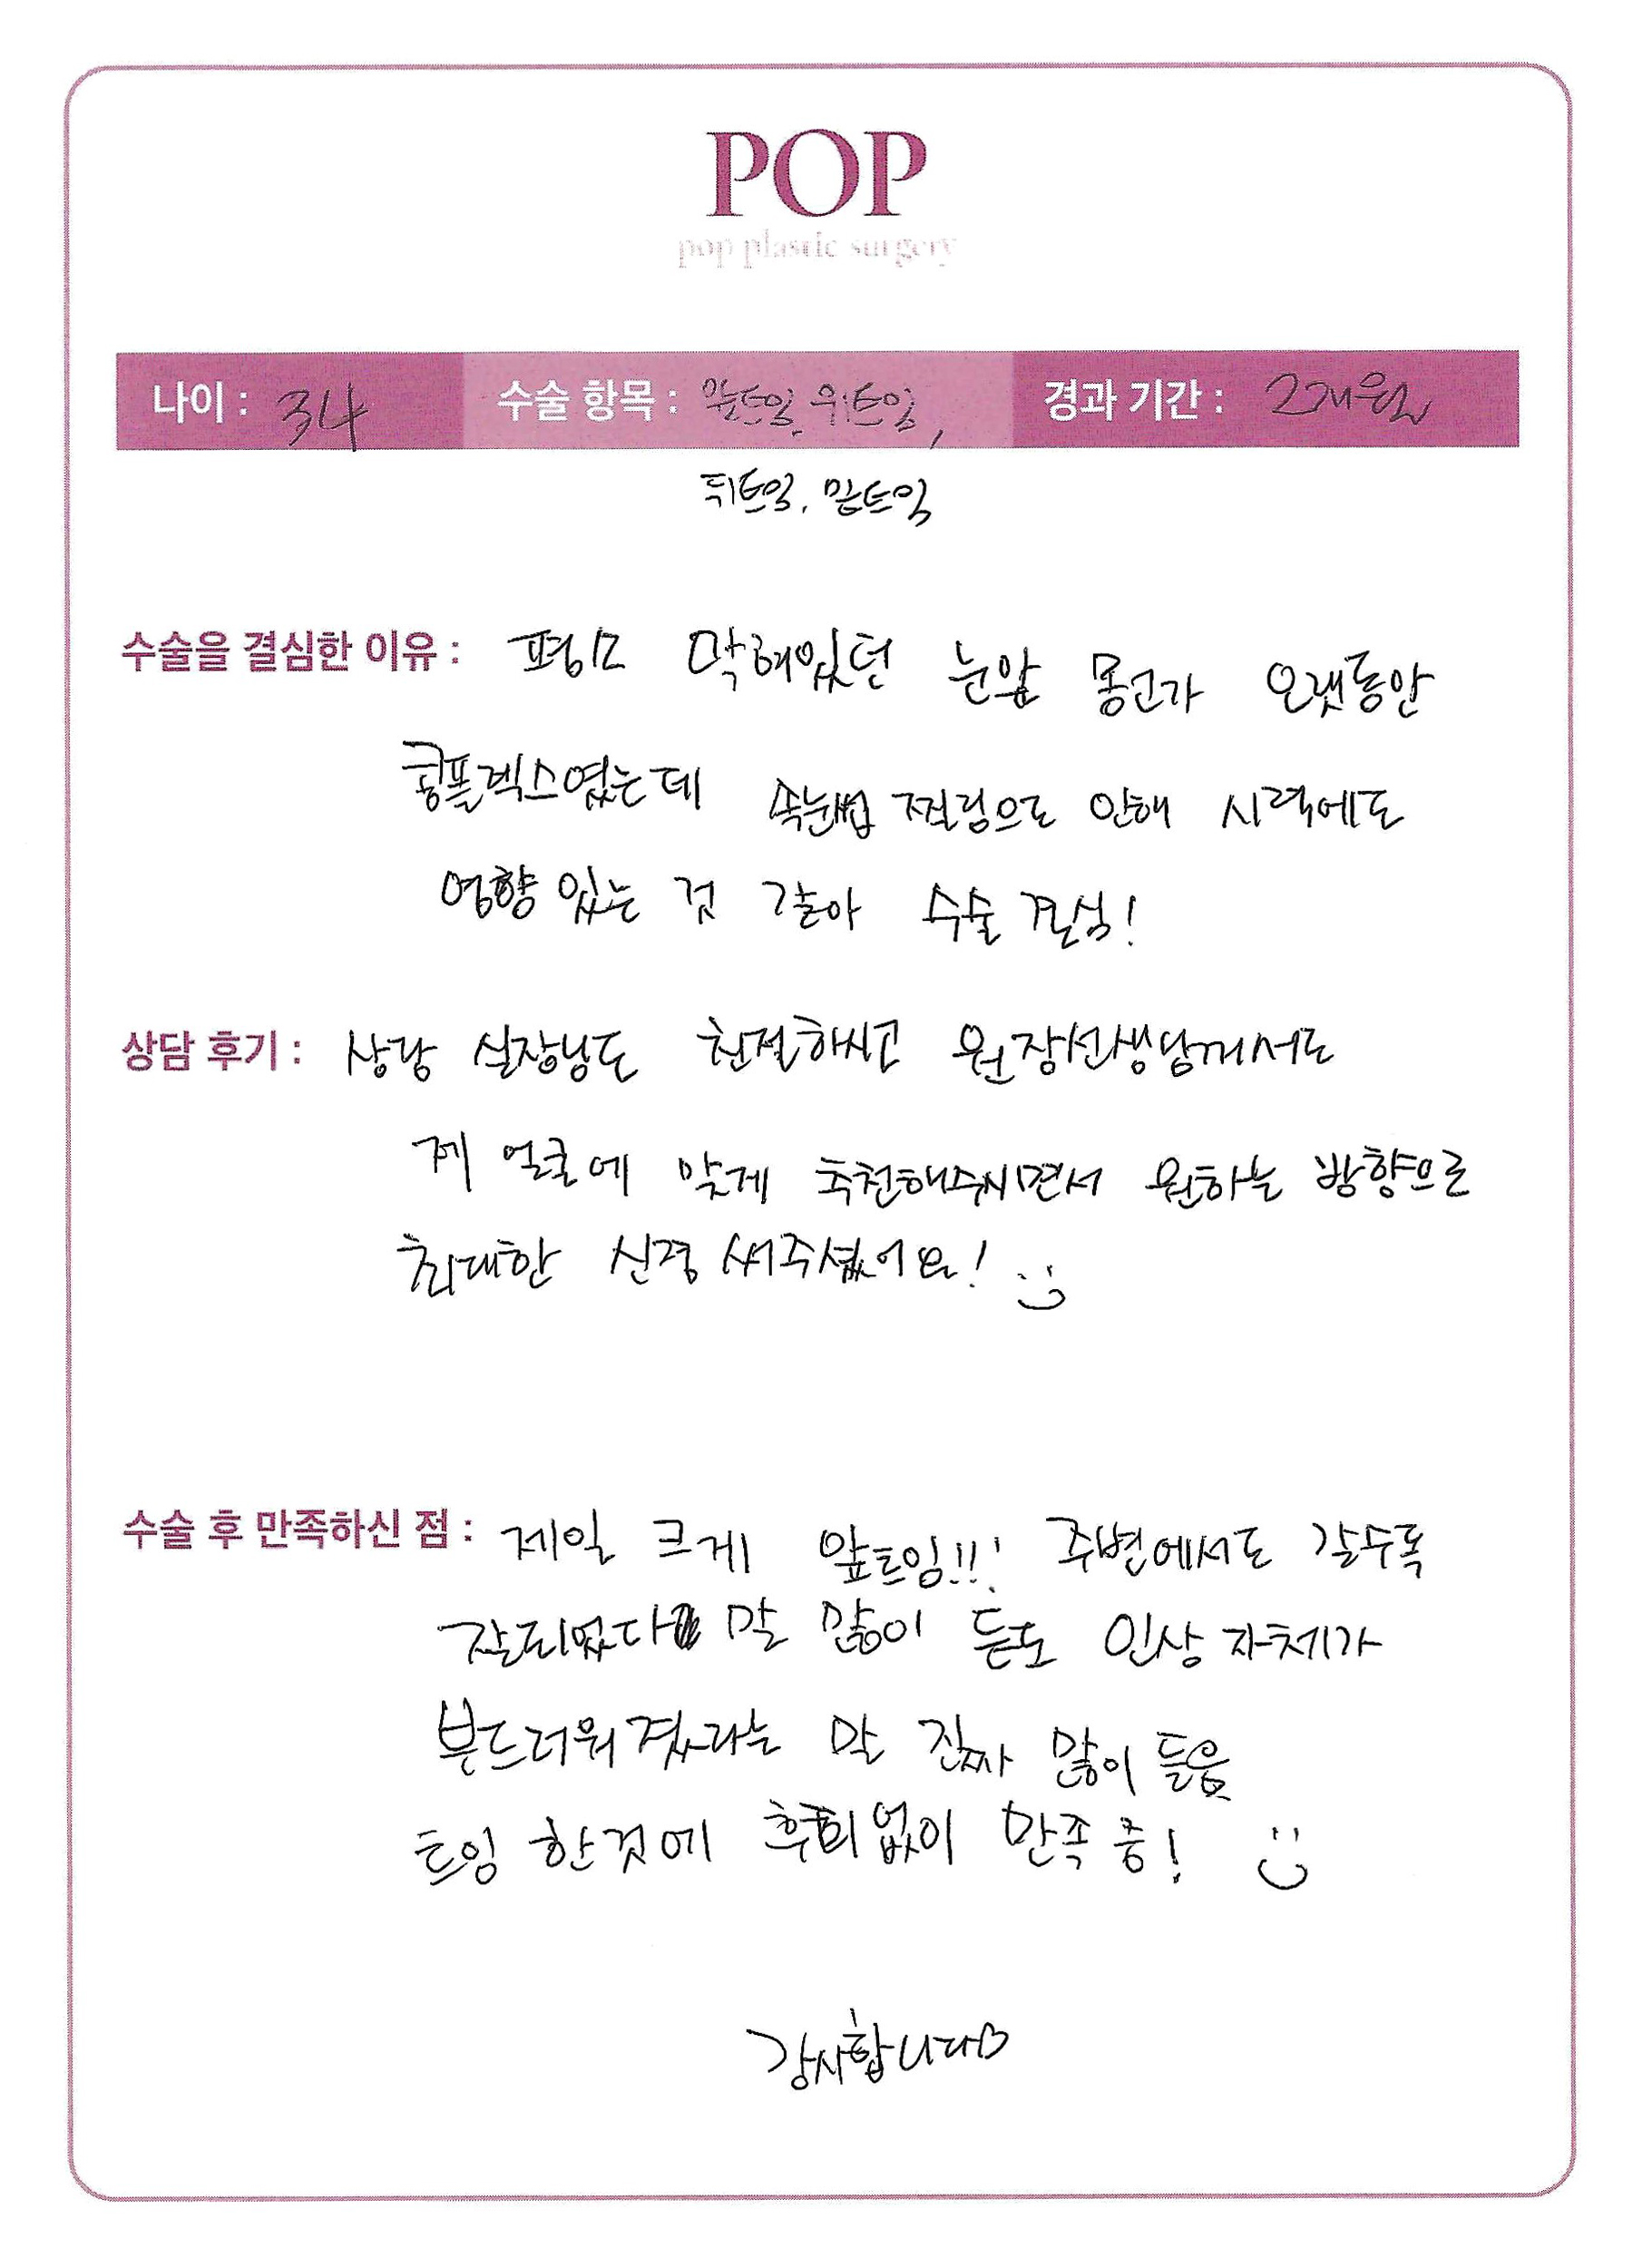 POP
pop plastic surgery
나이 : 34 수술 항목 : 앞트임, 위트임, 경과 기간 : 2개월
뒤트임, 밑트임
수술을 결심한 이유 : 평소 막혀있던 눈앞 몽고가 오랫동안
콤플렉스였는데 속눈썹 찔림으로 인해 시력에도
영향 있는 것 같아 수술 결심!
상담 후기 : 상담 실장님도 친절하시고 원장선생님께서도
제 얼굴에 맞게 추천해주시면서 원하는 방향으로
최대한 신경 써주셨어요! :)
수술 후 만족하신 점 : 제일 크게 앞트임!!! 주변에서도 갈수록
잘되었다 말 많이 듣고 인상 자체가
부드러워졌다라는 말 진짜 많이 들음
트임 한것에 후회없이 만족 중! :)
감사합니다♡